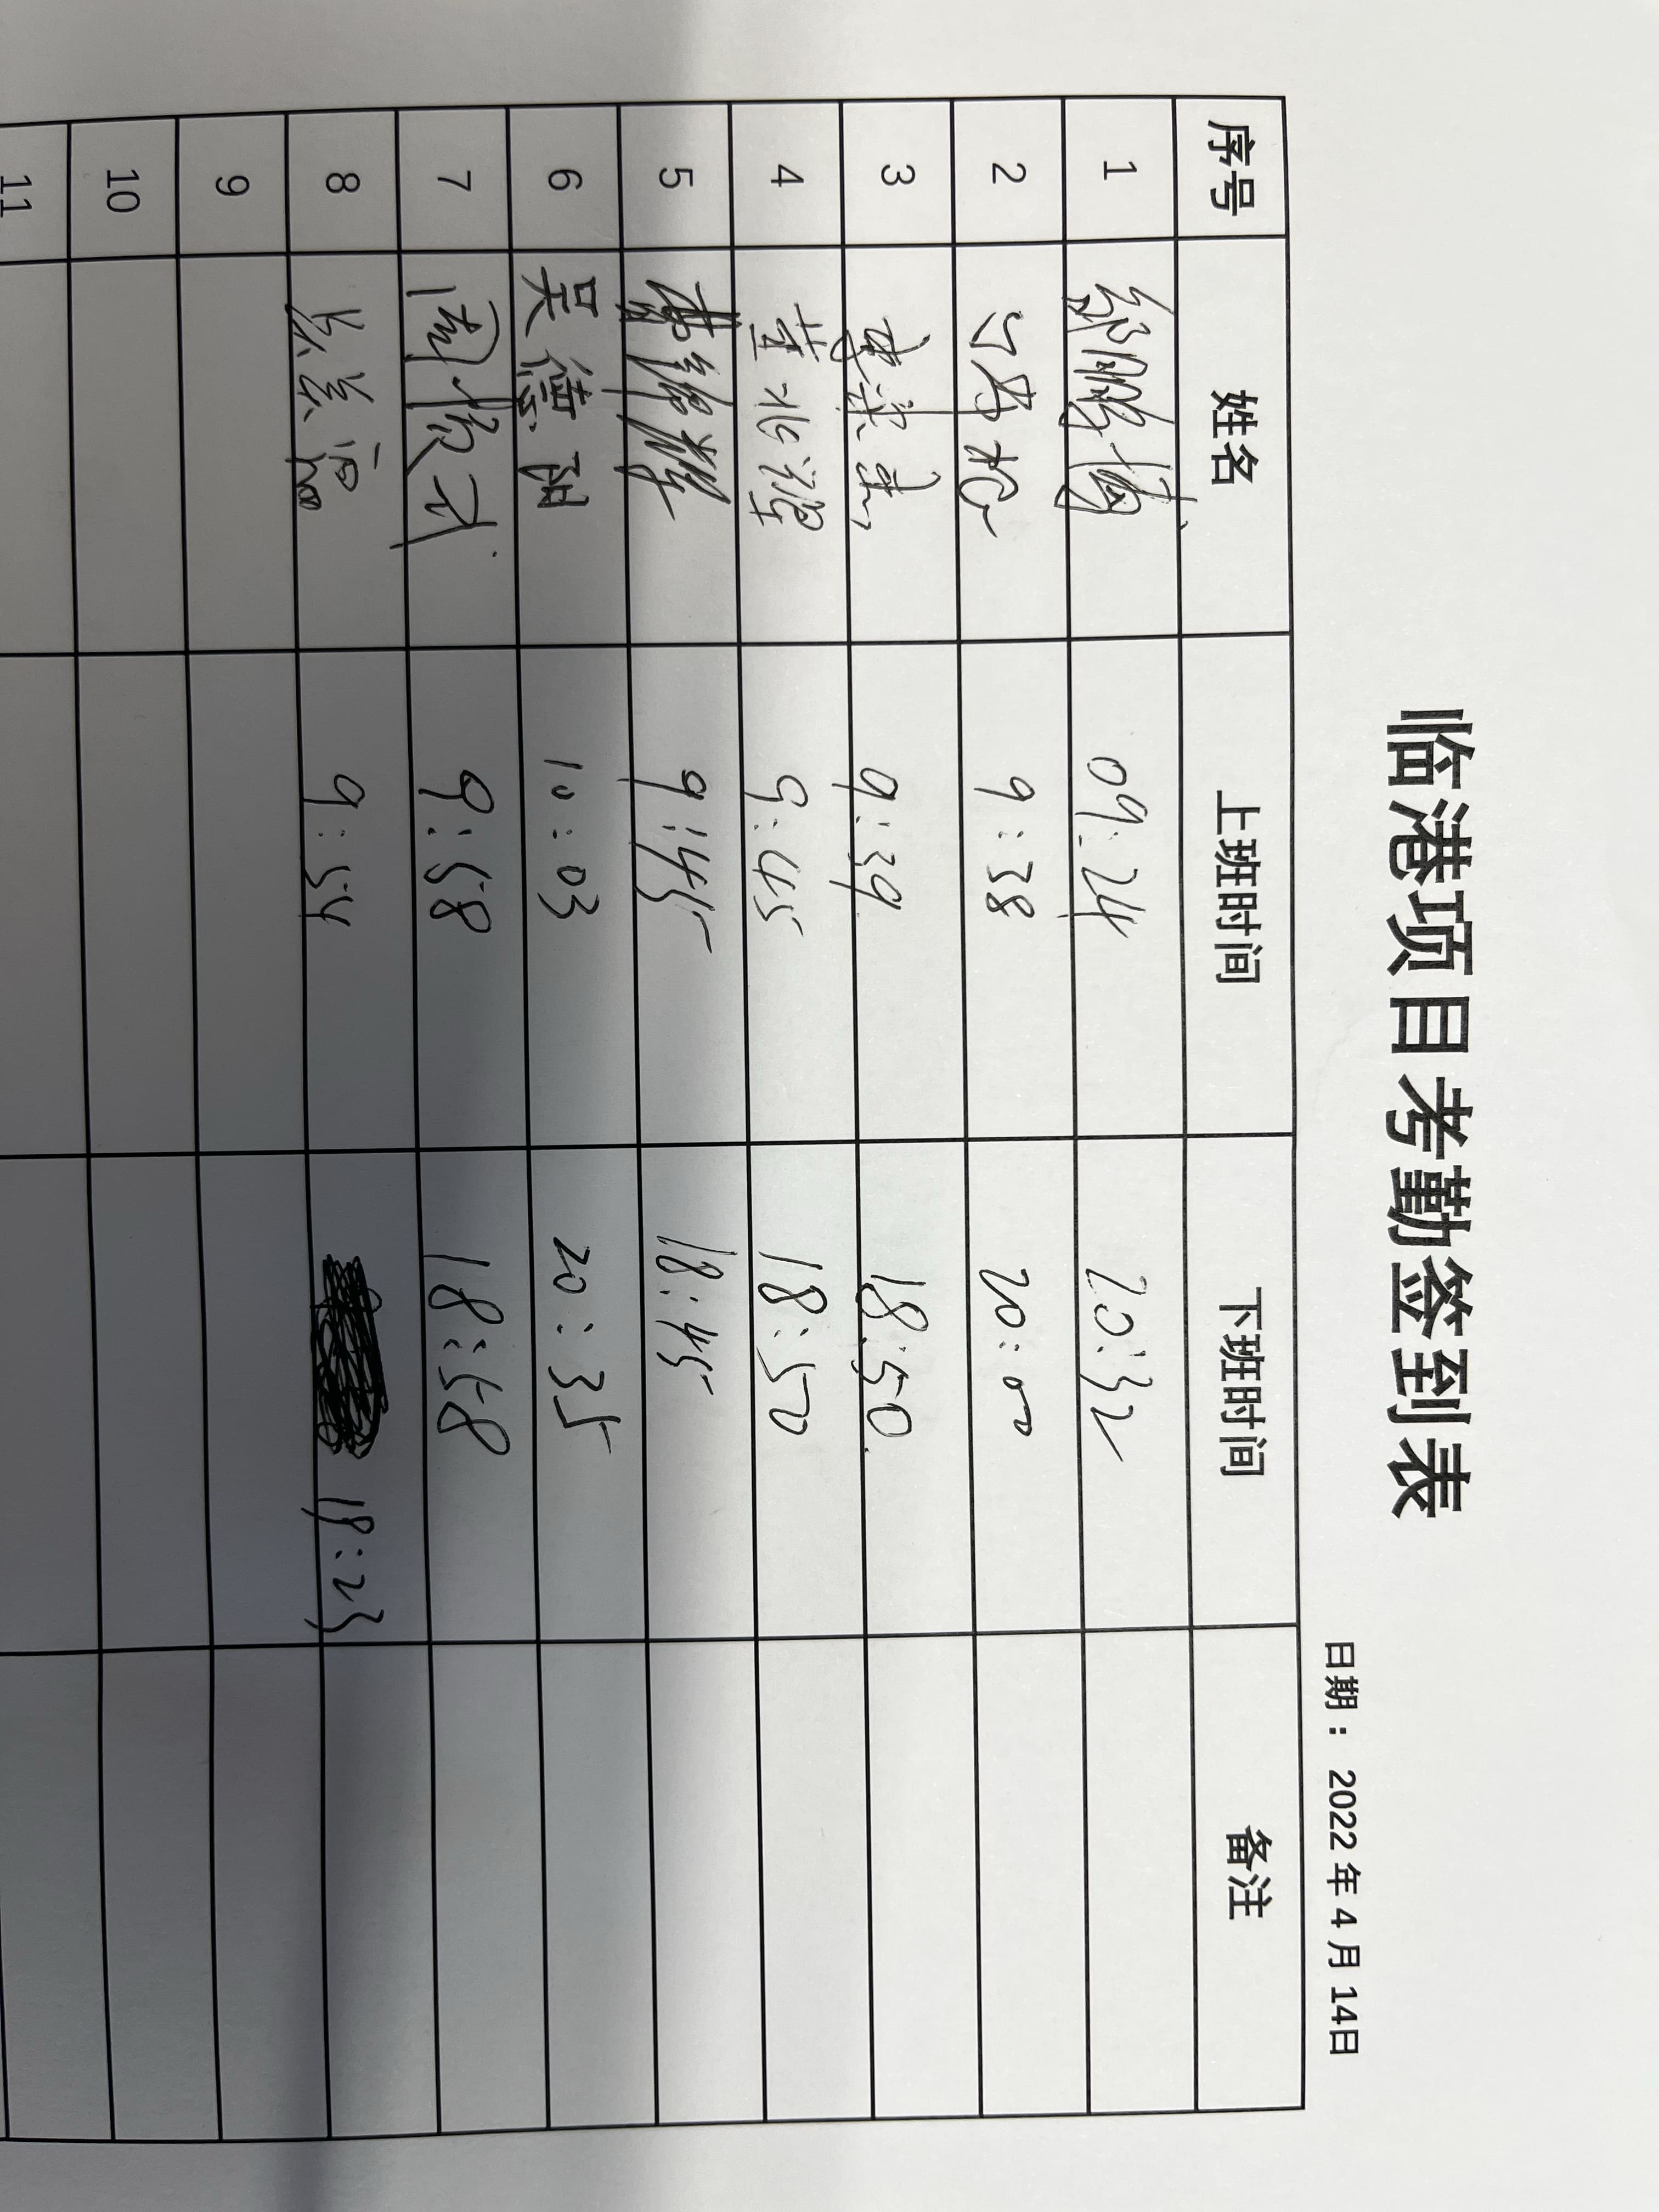 临港项目考勤签到表
日期： 2022 年 4 月 14日
序号 姓名 上班时间 下班时间 备注
1 邹鹏博 09:24 20:32
2 9:38 20:00
3 李荣杰 9:39 18:50
4 董兆辉 9:45 18:50
5 曹锦辉 9:45 18:45
6 吴德阳 10:03 20:35
7 周慎武 9:58 18:58
8 9:54 19:23
9
10
11